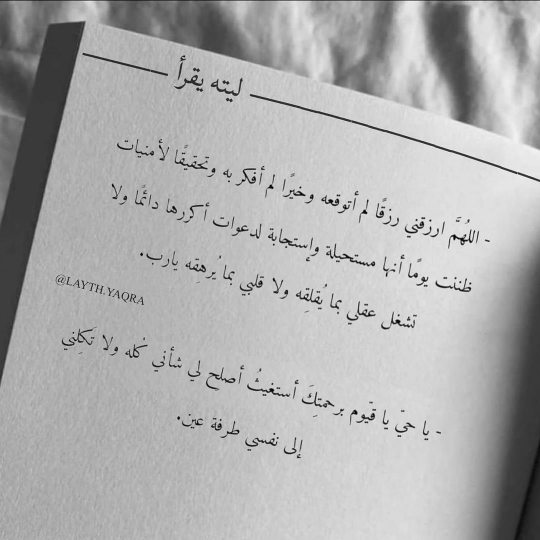 ليته يقرأ
- اللهُمَّ ارزقني رزقًا لم أتوقعه وخيرًا لم أفكر به وتحقيقًا لأمنيات
ظننت يومًا أنها مستحيلة وإستجابة لدعوات أكررها دائمًا ولا
تشغل عقلي بما يُقلقِه ولا قلبي بما يُرهِقه يارب.
@LAYTH.YAQRA
- يا حيّ يا قيّوم برحمتِكَ أستغيثُ أصلح لي شأني كُله ولا تَكِلنِي
إلى نفسي طرفة عين.